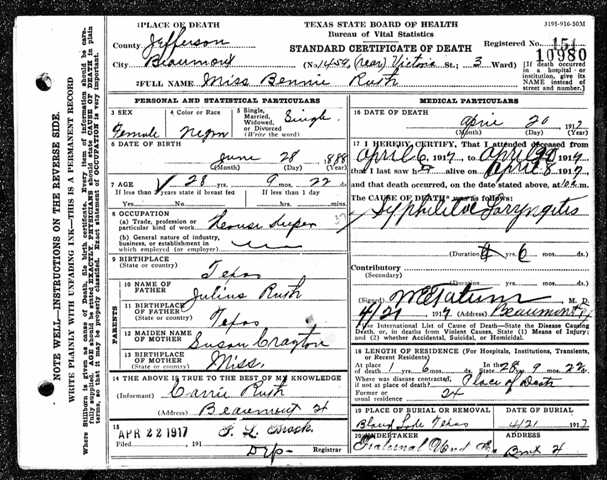 PLACE OF DEATH
TEXAS STATE BOARD OF HEALTH
Bureau of Vital Statistics
STANDARD CERTIFICATE OF DEATH
3191-916-50M
Registered No. 151
10980
County Jefferson
City Beaumont (No. 459 (rear) Victoria St.; 3 Ward)
[If death occurred in a hospital or institution, give its name instead of street and number.]
FULL NAME Miss Bennie Rush
PERSONAL AND STATISTICAL PARTICULARS
3 SEX
Female
4 Color or Race
Negro
5 Single, Married, Widowed, or Divorced (Write the word)
Single
6 DATE OF BIRTH
June 28 1888
(Month) (Day) (Year)
7 AGE
28 yrs. 9 mos. 22 ds.
If less than years state if breast fed
If less than 1 day
hrs. min.
8 OCCUPATION
(a) Trade, profession or particular kind of work
House keeper
(b) General nature of industry, business, or establishment in which employed (or employer)
9 BIRTHPLACE
(State or country)
Texas
PARENTS
10 NAME OF FATHER
Julius Rush
11 BIRTHPLACE OF FATHER
(State or country)
Texas
12 MAIDEN NAME OF MOTHER
Susan Crayton
13 BIRTHPLACE OF MOTHER
(State or country)
Miss.
14 THE ABOVE IS TRUE TO THE BEST OF MY KNOWLEDGE
(Informant) Carrie Rush
(Address) Beaumont
15
Filed APR 22 1917, 191
MEDICAL PARTICULARS
16 DATE OF DEATH
April 20 1917
(Month) (Day) (Year)
17 I HEREBY CERTIFY, That I attended deceased from
April 6 1917, to April 20 1917
that I last saw h alive on April 8 1917
and that death occurred, on the date stated above, at
The CAUSE OF DEATH* was as follows:
Laryngitis
(Duration) yrs. 6 mos. ds.
Contributory
(Secondary)
(Duration) yrs. mos. ds.
(Signed) M. D.
4/21 1917 (Address) Beaumont
*See International List of Cause of Death—State the Disease Causing Death, or, in deaths from Violent Causes, State (1) Means of Injury; and (2) whether Accidental, Suicidal, or Homicidal.
18 LENGTH OF RESIDENCE (For Hospitals, Institutions, Transients, or Recent Residents)
At place of death 1 yrs. 6 mos. ds. In the State 28 yrs. 9 mos. 22 ds.
Where was disease contracted, if not at place of death? Place of Death
Former or usual residence
19 PLACE OF BURIAL OR REMOVAL
DATE OF BURIAL
Texas 4/21 1917
20 UNDERTAKER
ADDRESS
NOTE WELL—INSTRUCTIONS ON THE REVERSE SIDE.
WRITE PLAINLY WITH UNFADING INK—THIS IS A PERMANENT RECORD